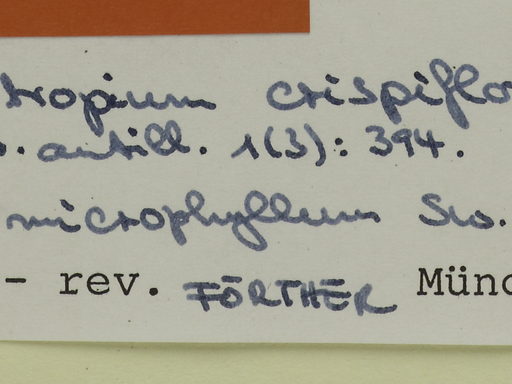 tropium crispiflo
. antill. 1(3): 394.
microphyllum Sw.
- rev. FÖRTHER Münc